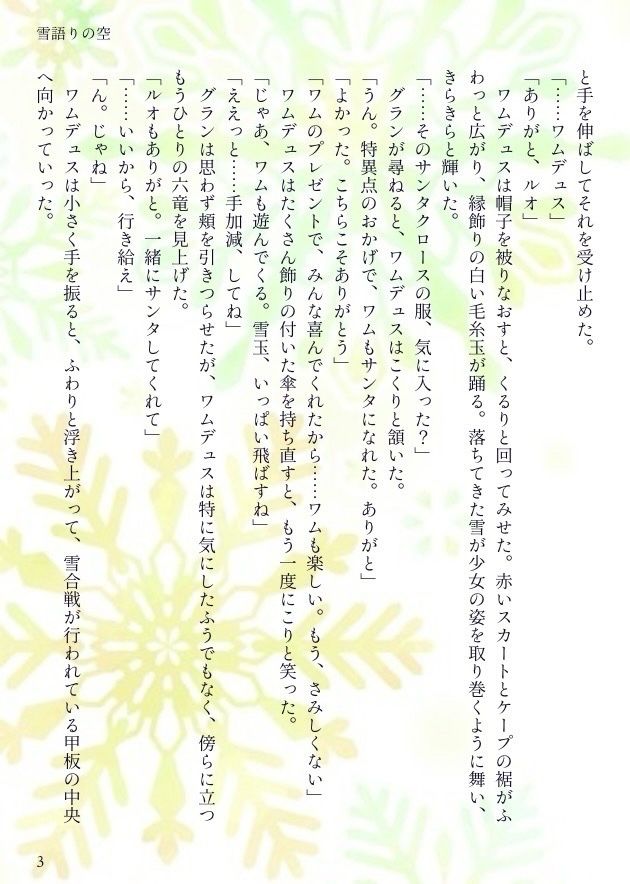 雪語りの空
と手を伸ばしてそれを受け止めた。
「……ワムデュス」
「ありがと、ルオ」
　ワムデュスは帽子を被りなおすと、くるりと回ってみせた。赤いスカートとケープの裾がふ
わっと広がり、縁飾りの白い毛糸玉が踊る。落ちてきた雪が少女の姿を取り巻くように舞い、
きらきらと輝いた。
「……そのサンタクロースの服、気に入った？」
　グランが尋ねると、ワムデュスはこくりと頷いた。
「うん。特異点のおかげで、ワムもサンタになれた。ありがと」
「よかった。こちらこそありがとう」
「ワムのプレゼントで、みんな喜んでくれたから……ワムも楽しい。もう、さみしくない」
　ワムデュスはたくさん飾りの付いた傘を持ち直すと、もう一度にこりと笑った。
「じゃあ、ワムも遊んでくる。雪玉、いっぱい飛ばすね」
「ええっと……手加減、してね」
　グランは思わず頬を引きつらせたが、ワムデュスは特に気にしたふうでもなく、傍らに立つ
もうひとりの六竜を見上げた。
「ルオもありがと。一緒にサンタしてくれて」
「……いいから、行き給え」
「ん。じゃね」
　ワムデュスは小さく手を振ると、ふわりと浮き上がって、雪合戦が行われている甲板の中央
へ向かっていった。
3